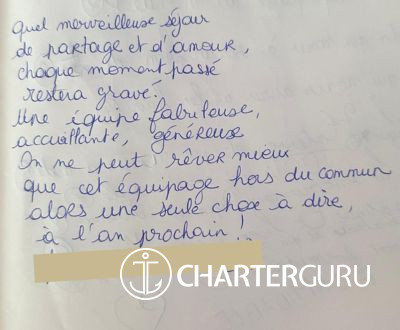 Quel merveilleux séjour
de partage et d'amour,
chaque moment passé
restera gravé.
Une équipe fabuleuse,
accueillante, généreuse
On ne peut rêver mieux
que cet équipage hors du commun
alors une seule chose à dire,
à l'an prochain !
CHARTERGURU